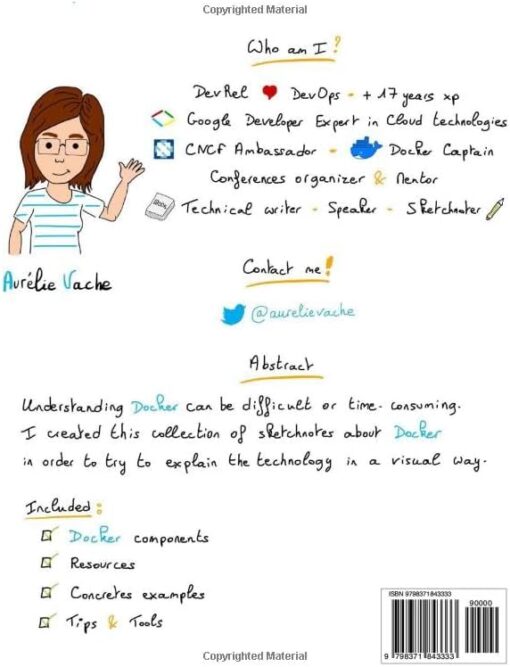 Copyrighted Material
Who am I ?
DevRel DevOps - + 17 years xp
Google Developer Expert in Cloud technologies
CNCF Ambassador - Docker Captain
Conferences organizer & Mentor
Technical writer - Speaker - Sketchnoter
Aurélie Vache
Contact me !
@aurelievache
Abstract
Understanding Docker can be difficult or time-consuming.
I created this collection of sketchnotes about Docker
in order to try to explain the technology in a visual way.
Included :
Docker components
Resources
Concretes examples
Tips & Tools
ISBN 9798371843333
90000
9 798371 843333
Copyrighted Material